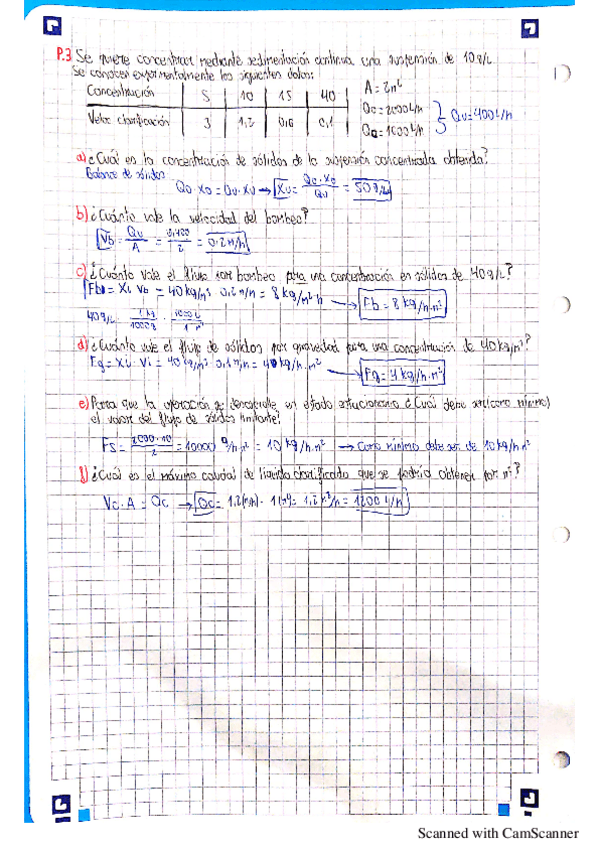 P.3 Se quiere concentrar mediante sedimentación continua una suspensión de 10 g/L
Se conocen experimentalmente los siguientes datos:
Concentración | 5 | 10 | 15 | 40
Veloc clarificación | 3 | 1,2 | 0,6 | 0,1
A = 2m²
Qc = 2000 L/h
Qv = 400 L/h
a) ¿Cuál es la concentración de sólidos de la suspensión concentrada obtenida?
Balance de sólidos
Qo · Xo = Qu · Xu → Xu = Qo · Xo / Qu = 50 g/L
b) ¿Cuánto vale la velocidad del bombeo?
Vb = Qu / A = 0,400 / 2 = 0.2 m/h
c) ¿Cuánto vale el flujo por bombeo para una concentración en sólidos de 40 g/L?
Fb = Xi Vb = 40 kg/m³ 0,2 m/h = 8 kg/m² h → Fb = 8 kg/h·m²
40 g/L · 1 kg / 1000 g · 1000 L / 1 m³
d) ¿Cuánto vale el flujo de sólidos por gravedad para una concentración de 40 kg/m³?
Fg = Xi · Vi = 40 kg/m³ 0,1 m/h = 4 kg/h·m² → Fg = 4 kg/h·m²
e) Para que la operación se desarrolle en estado estacionario ¿Cuál debe ser (como mínimo)
el valor del flujo de sólidos limitante?
Fs = 2000 · 10 / 2 = 10000 g/h·m² = 10 kg/h·m² → Como mínimo debe ser de 10 kg/h·m²
f) ¿Cuál es el máximo caudal de líquido clarificado que se podría obtener por m²?
Vc · A = Qc → Qc = 1,2 (m/h) · 1 (m²) = 1,2 m³/h = 1200 L/h
Scanned with CamScanner